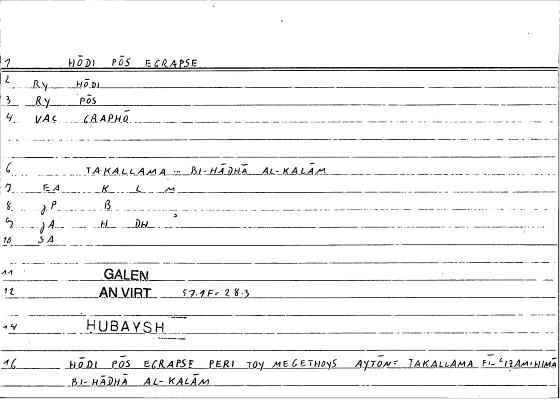 1 HŌDI PŌS EGRAPSE
2 RY HŌDI
3 RY PŌS
4 VAC GRAPHŌ
6 TAKALLAMA ... BI-HĀDHĀ AL-KALĀM
7 EA K L M
8 JP B
9 JA H DH
10 SA
11 GALEN
12 AN VIRT 57.1F = 28.3
14 HUBAYSH
16 HŌDI PŌS EGRAPSE PERI TOY MEGETHOYS AYTŌN = TAKALLAMA FĪ-ʿIZAMIHIMĀ
BI-HĀDHĀ AL-KALĀM